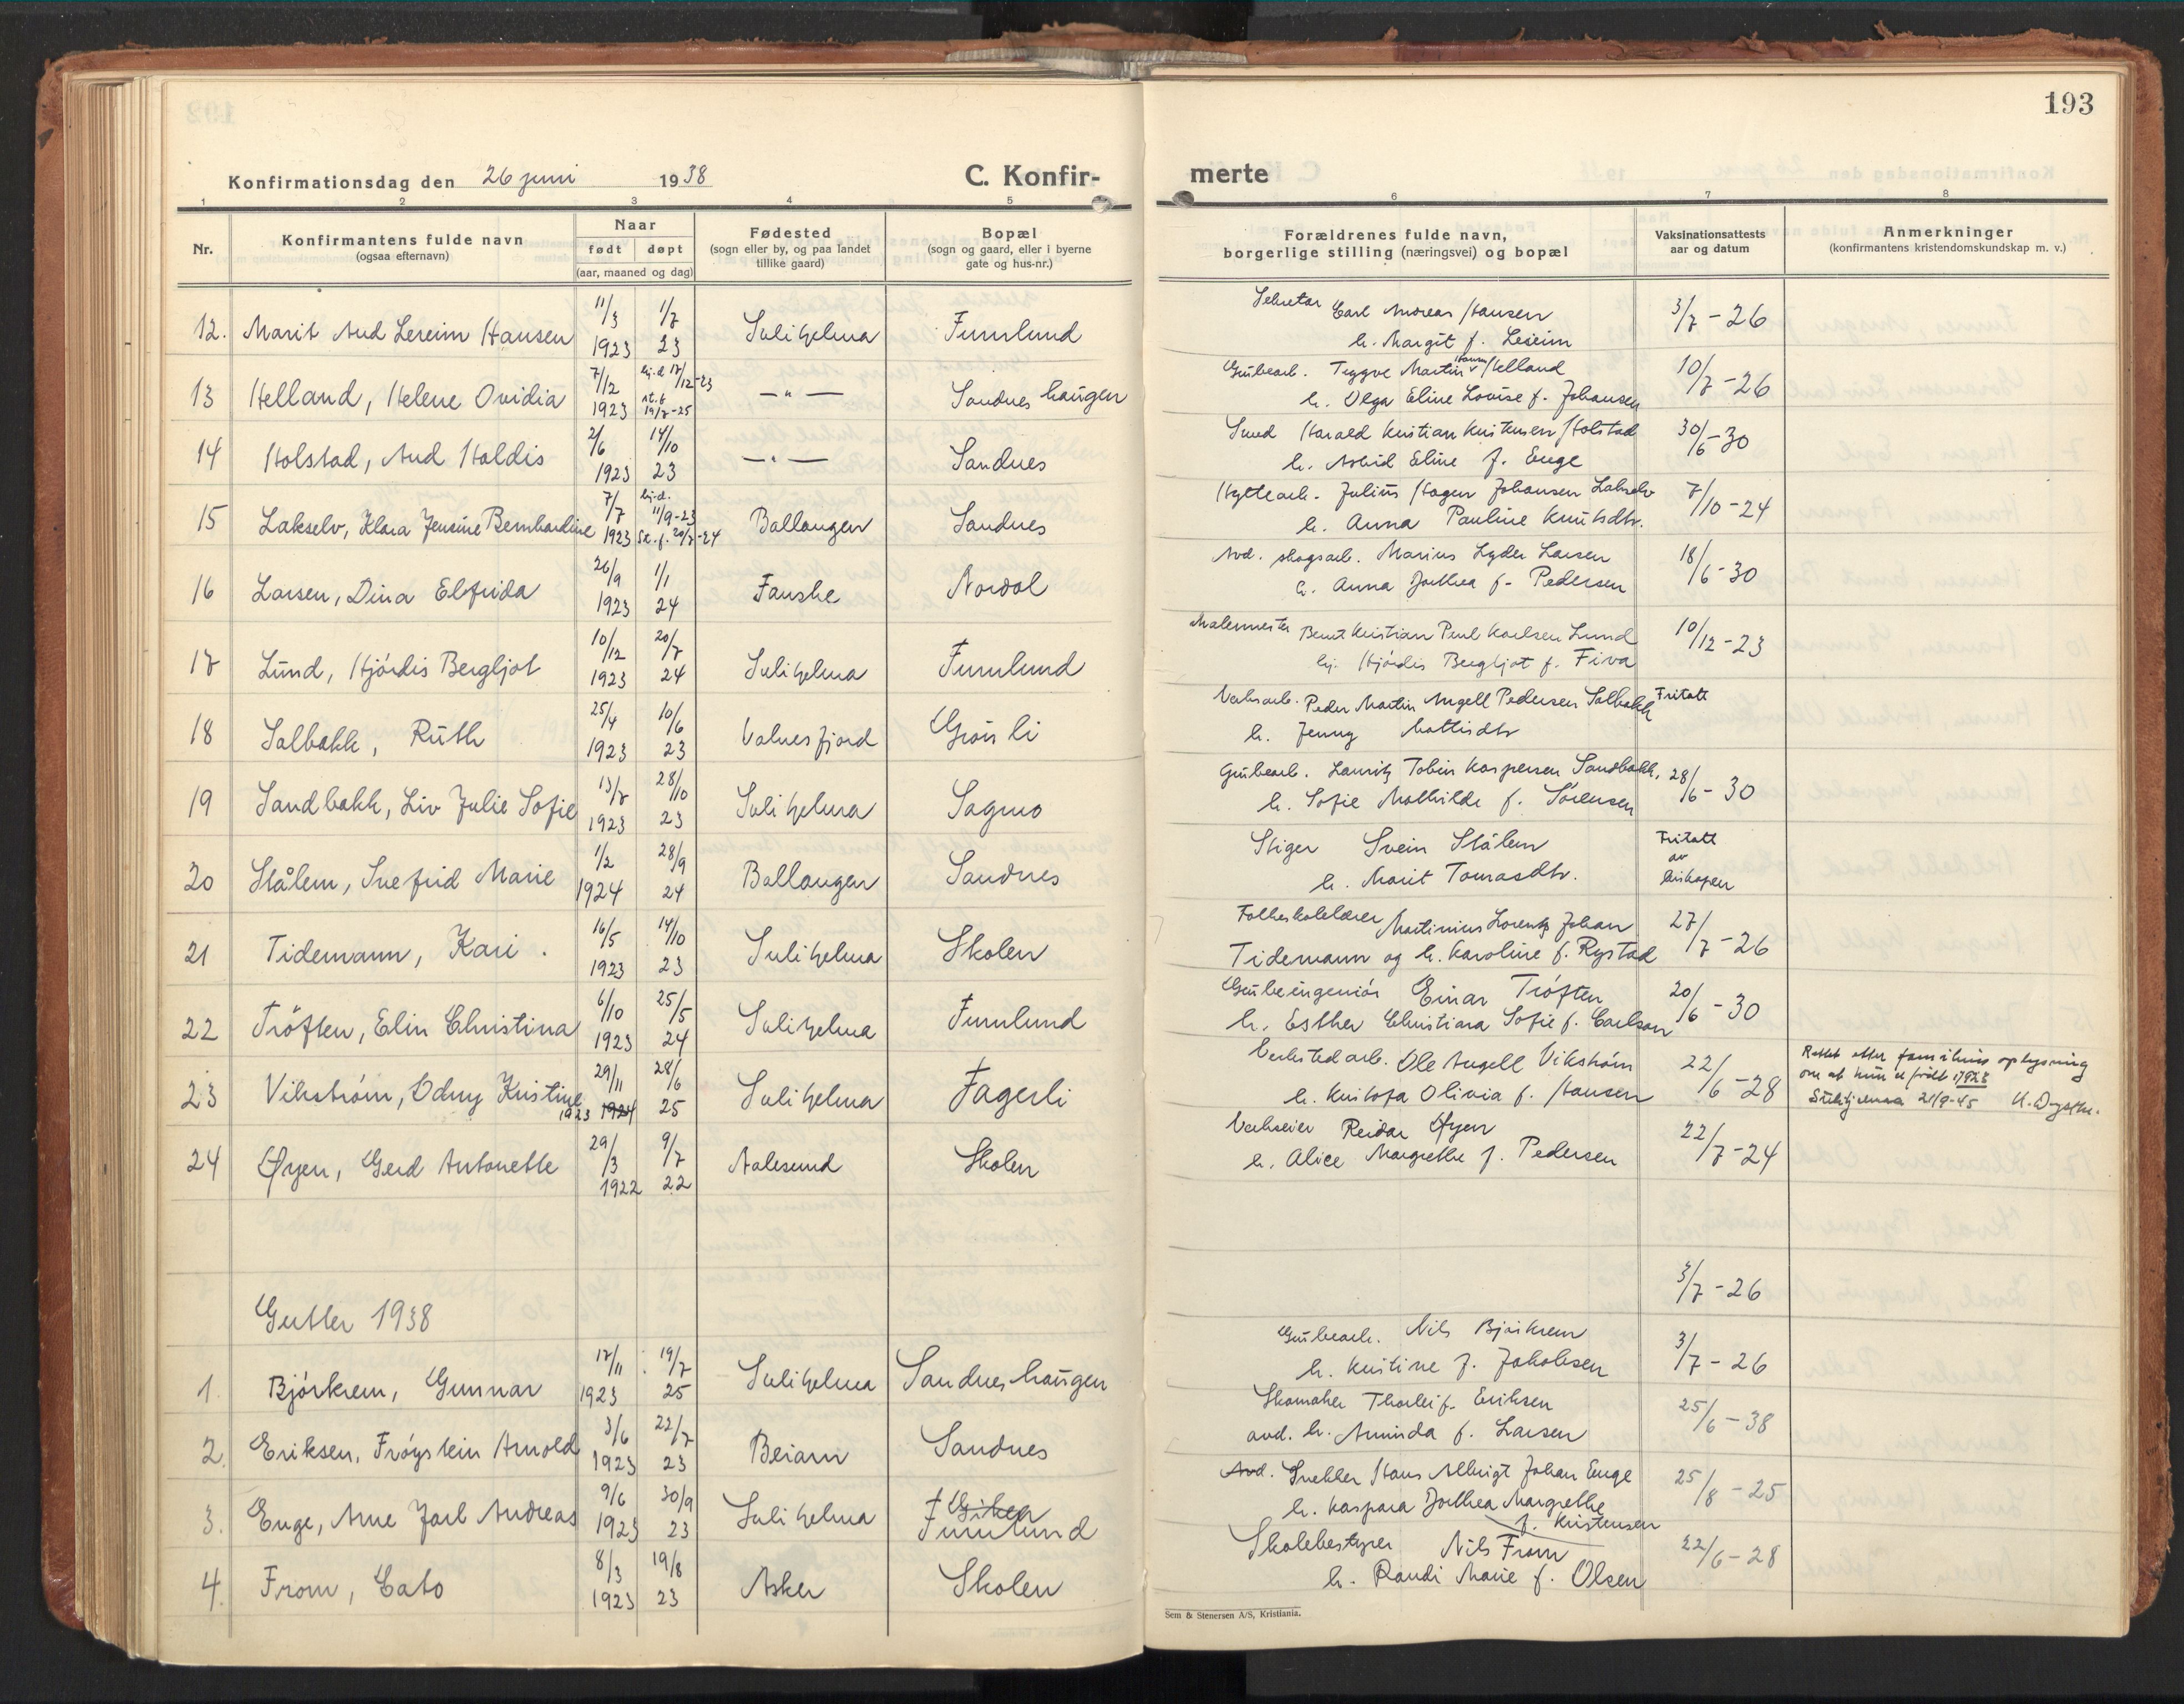 193
Konfirmationsdag den 26 juni 1938
C. Konfir-
merte
1 2 3 4 5 6 7 8
Nr.
Konfirmantens fulde navn
(ogsaa efternavn)
Naar
født døpt
(aar, maaned og dag)
Fødested
(sogn eller by, og paa landet
tillike gaard)
Bopæl
(sogn og gaard, eller i byerne
gate og hus-nr.)
Forældrenes fulde navn,
borgerlige stilling (næringsvei) og bopæl
Vaksinationsattests
aar og datum
Anmerkninger
(konfirmantens kristendomskundskap m. v.)
12. Marit Aud Lereim Hansen 11/3 1923 1/7 23 Sulitjelma Furulund
Sekretær Carl Andreas Hansen
h. Margit f. Lereim 3/7-26
13 Helland, Helene Ovidia 7/12 1923 hj.d. 17/12-23 st.f. 19/7-25 —"— Sandneshaugen
Grubearb. Trygve Martin Hansen Helland
h. Olga Eline Lovise f. Johansen 10/7-26
14 Holstad, Aud Haldis 2/6 1923 14/10 23 —"— Sandnes
Smed Harald Kristian Kristensen Holstad
h. Astrid Eline f. Enge 30/6-30
15 Lakselv, Klara Jensine Bernhardine 7/7 1923 hj.d. 11/9-23 st.f. 20/7-24 Ballangen Sandnes
Hyttearb. Julius Hagen Johansen Lakselv
h. Anna Pauline Knutsdtr. 7/10-24
16 Larsen, Dina Elfrida 26/9 1923 1/1 24 Fauske Nordal
Avd. skogsarb. Marius Lyder Larsen
h. Anna Dorthea f. Pedersen 18/6-30
17 Lund, Hjördis Bergljot 10/12 1923 20/7 24 Sulitjelma Furulund
Malermester Bernt Kristian Paul Karlsen Lund
hj. Hjördis Bergljot f. Fiva 10/12-23
18 Salbakk, Ruth 25/4 1923 10/6 23 Valnesfjord Grønli
Verksarb. Peder Martin Angell Pedersen Salbakk
h. Jenny Mattisdtr Fritatt
19 Sandbakk, Liv Julie Sofie 13/7 1923 28/10 23 Sulitjelma Sagmo
Grubearb. Lauritz Tobias Kaspersen Sandbakk,
h. Sofie Mathilde f. Sørensen 28/6-30
20 Stålem, Snefrid Marie 1/2 1924 28/9 24 Ballangen Sandnes
Stiger Svein Stålem
h. Marit Tomasdtr. Fritatt av biskopen
21 Tidemann, Kari. 16/5 1923 14/10 23 Sulitjelma Skolen
Folkeskolelærer Martinius Lorentz Johan
Tidemann og h. Karoline f. Rystad 27/7-26
22 Tröften, Elin Christina 6/10 1923 25/5 24 Sulitjelma Furulund
Grubeingeniör Einar Tröften
h. Esther Christiara Sofie f. Carlson 20/6-30
23 Vikström, Odny Kristine 29/11 1923 1924 28/6 25 Sulitjelma Fagerli
Verkstedarb. Ole Angell Vikström
h. Kristofa Olivia f. Hansen 22/6-28
Rettet etter familiens oplysning
om at hun er född 1923
Sulitjelma 21/9-45
24 Øyen, Gerd Antonette 29/3 1922 9/7 22 Aalesund Skolen
Verkseier Reidar Øyen
h. Alice Margrethe f. Pedersen 22/7-24
3/7-26
Gutter 1938
1. Björkrem, Gunnar 17/11 1923 19/7 25 Sulitjelma Sandneshaugen
Grubearb. Nils Björkrem
h. Kristine f. Jakobsen 3/7-26
2. Eriksen, Fröystein Arnold 3/6 1923 22/7 23 Beiarn Sandnes
Skomaker Thorleif Eriksen
avd. h. Aminda f. Larsen 25/6-38
3. Enge, Arne Jarl Andreas 9/6 1923 30/9 23 Sulitjelma Furulund
Avd. Snekker Hans Albrigt Johan Enge
h. Kaspara Dorthea Margrethe
f. Kristensen 25/8-25
4. From, Cato 8/3 1923 19/8 23 Asker Skolen
Skolebestyrer Nils From
h. Randi Marie f. Olsen 22/6-28
Sem & Stenersen A/S, Kristiania.